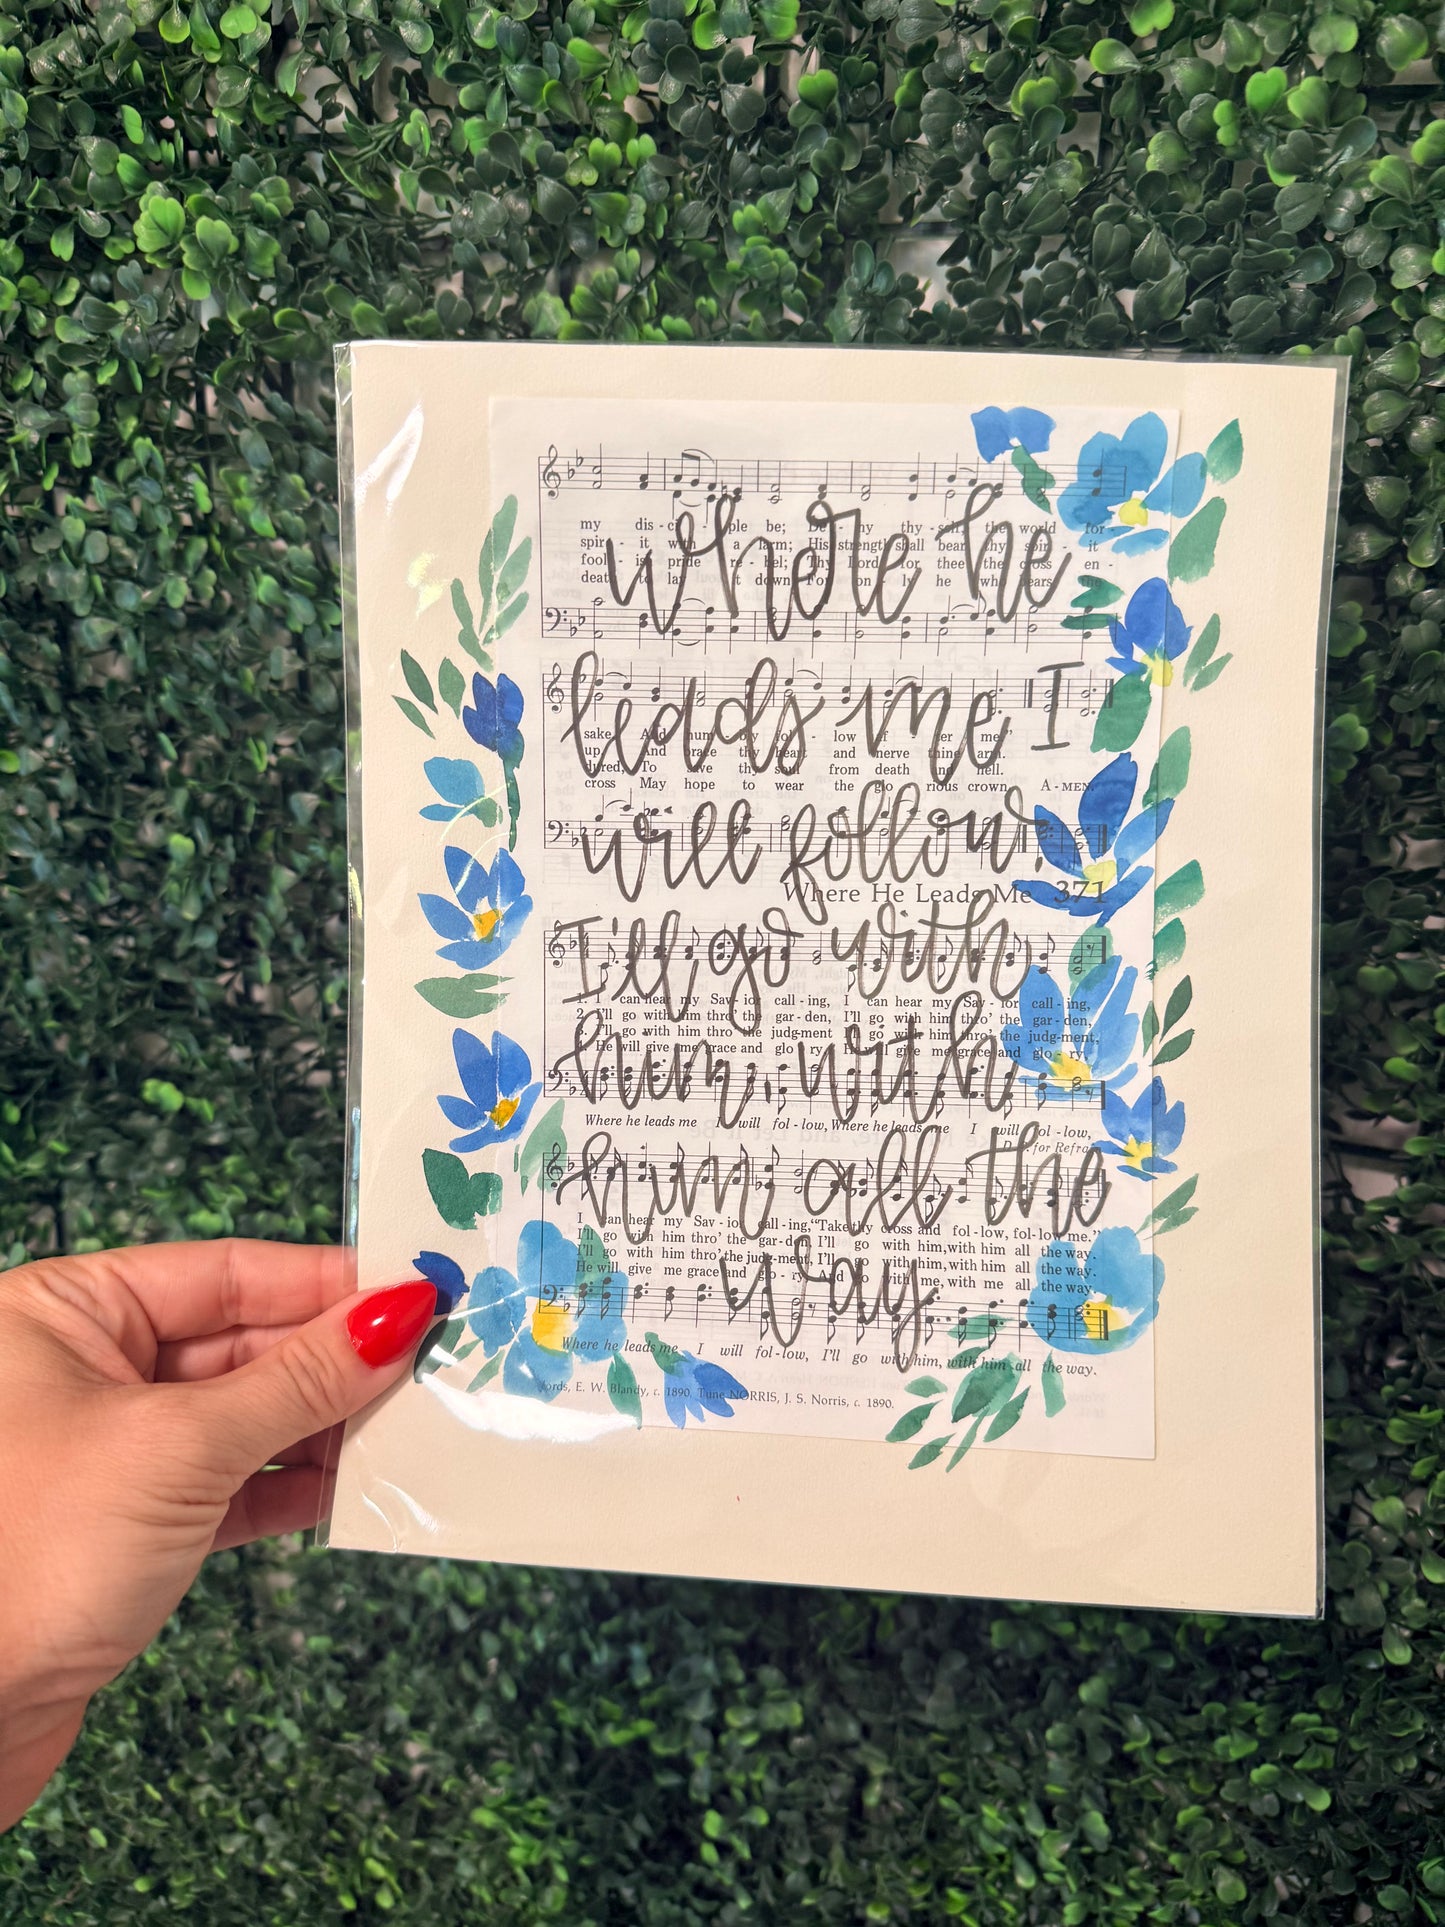 my dis - ci - ple be; De - ny thy - self, the world for -
spir - it with a - larm; His strength shall bear thy spir - it
fool - ish pride re - bel; Thy Lord for thee the cross en -
death to lay it down; For on - ly he who bears the
where he
sake, And hum - bly fol - low af - ter me."
up, And brace thy heart and nerve thine arm.
dured, To save thy soul from death and hell.
cross May hope to wear the glo - rious crown. A - MEN.
leads me I
will follow.
Where He Leads Me 371
I'll go with
1. I can hear my Sav - ior call - ing, I can hear my Sav - ior call - ing,
2. I'll go with him thro' the gar - den, I'll go with him thro' the gar - den,
3. I'll go with him thro' the judg-ment, I'll go with him thro' the judg-ment,
4. He will give me grace and glo - ry, He will give me grace and glo - ry,
him, with
Where he leads me I will fol - low, Where he leads me I will fol - low,
for Refrain
him all the
I can hear my Sav - ior call - ing, "Take thy cross and fol - low, fol - low me."
I'll go with him thro' the gar - den, I'll go with him, with him all the way.
I'll go with him thro' the judg-ment, I'll go with him, with him all the way.
He will give me grace and glo - ry, And go with me, with me all the way.
way
Where he leads me I will fol - low, I'll go with him, with him all the way.
Words, E. W. Blandy, c. 1890. Tune NORRIS, J. S. Norris, c. 1890.